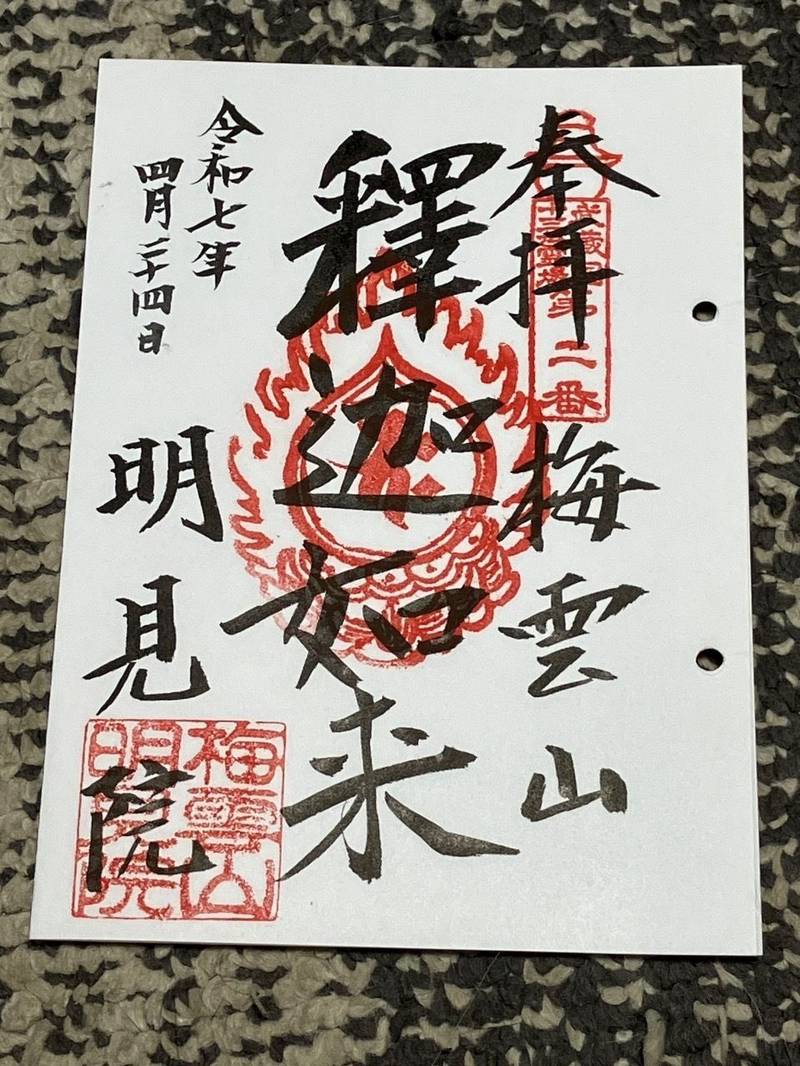 奉拝
武蔵国
十三霊場第二番
梅雲山
釋迦如来
令和七年
四月二十四日
明見院
梅雲山
明見院